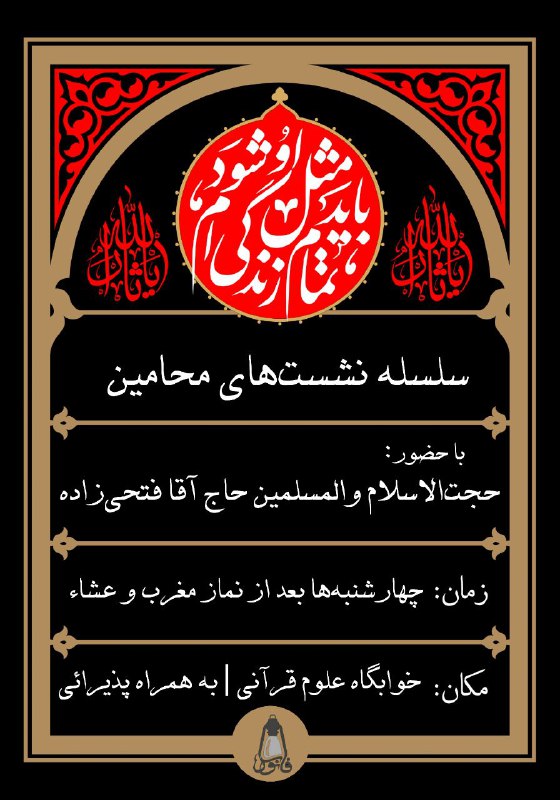 باید مثل او شود
تمام زندگی‌ام
یا ثارالله
یا ثارالله
سلسله نشست‌های محامین
با حضور:
حجت‌الاسلام والمسلمین حاج آقا فتحی‌زاده
زمان: چهارشنبه‌ها بعد از نماز مغرب و عشاء
مکان: خوابگاه علوم قرآنی | به همراه پذیرائی
فانوس